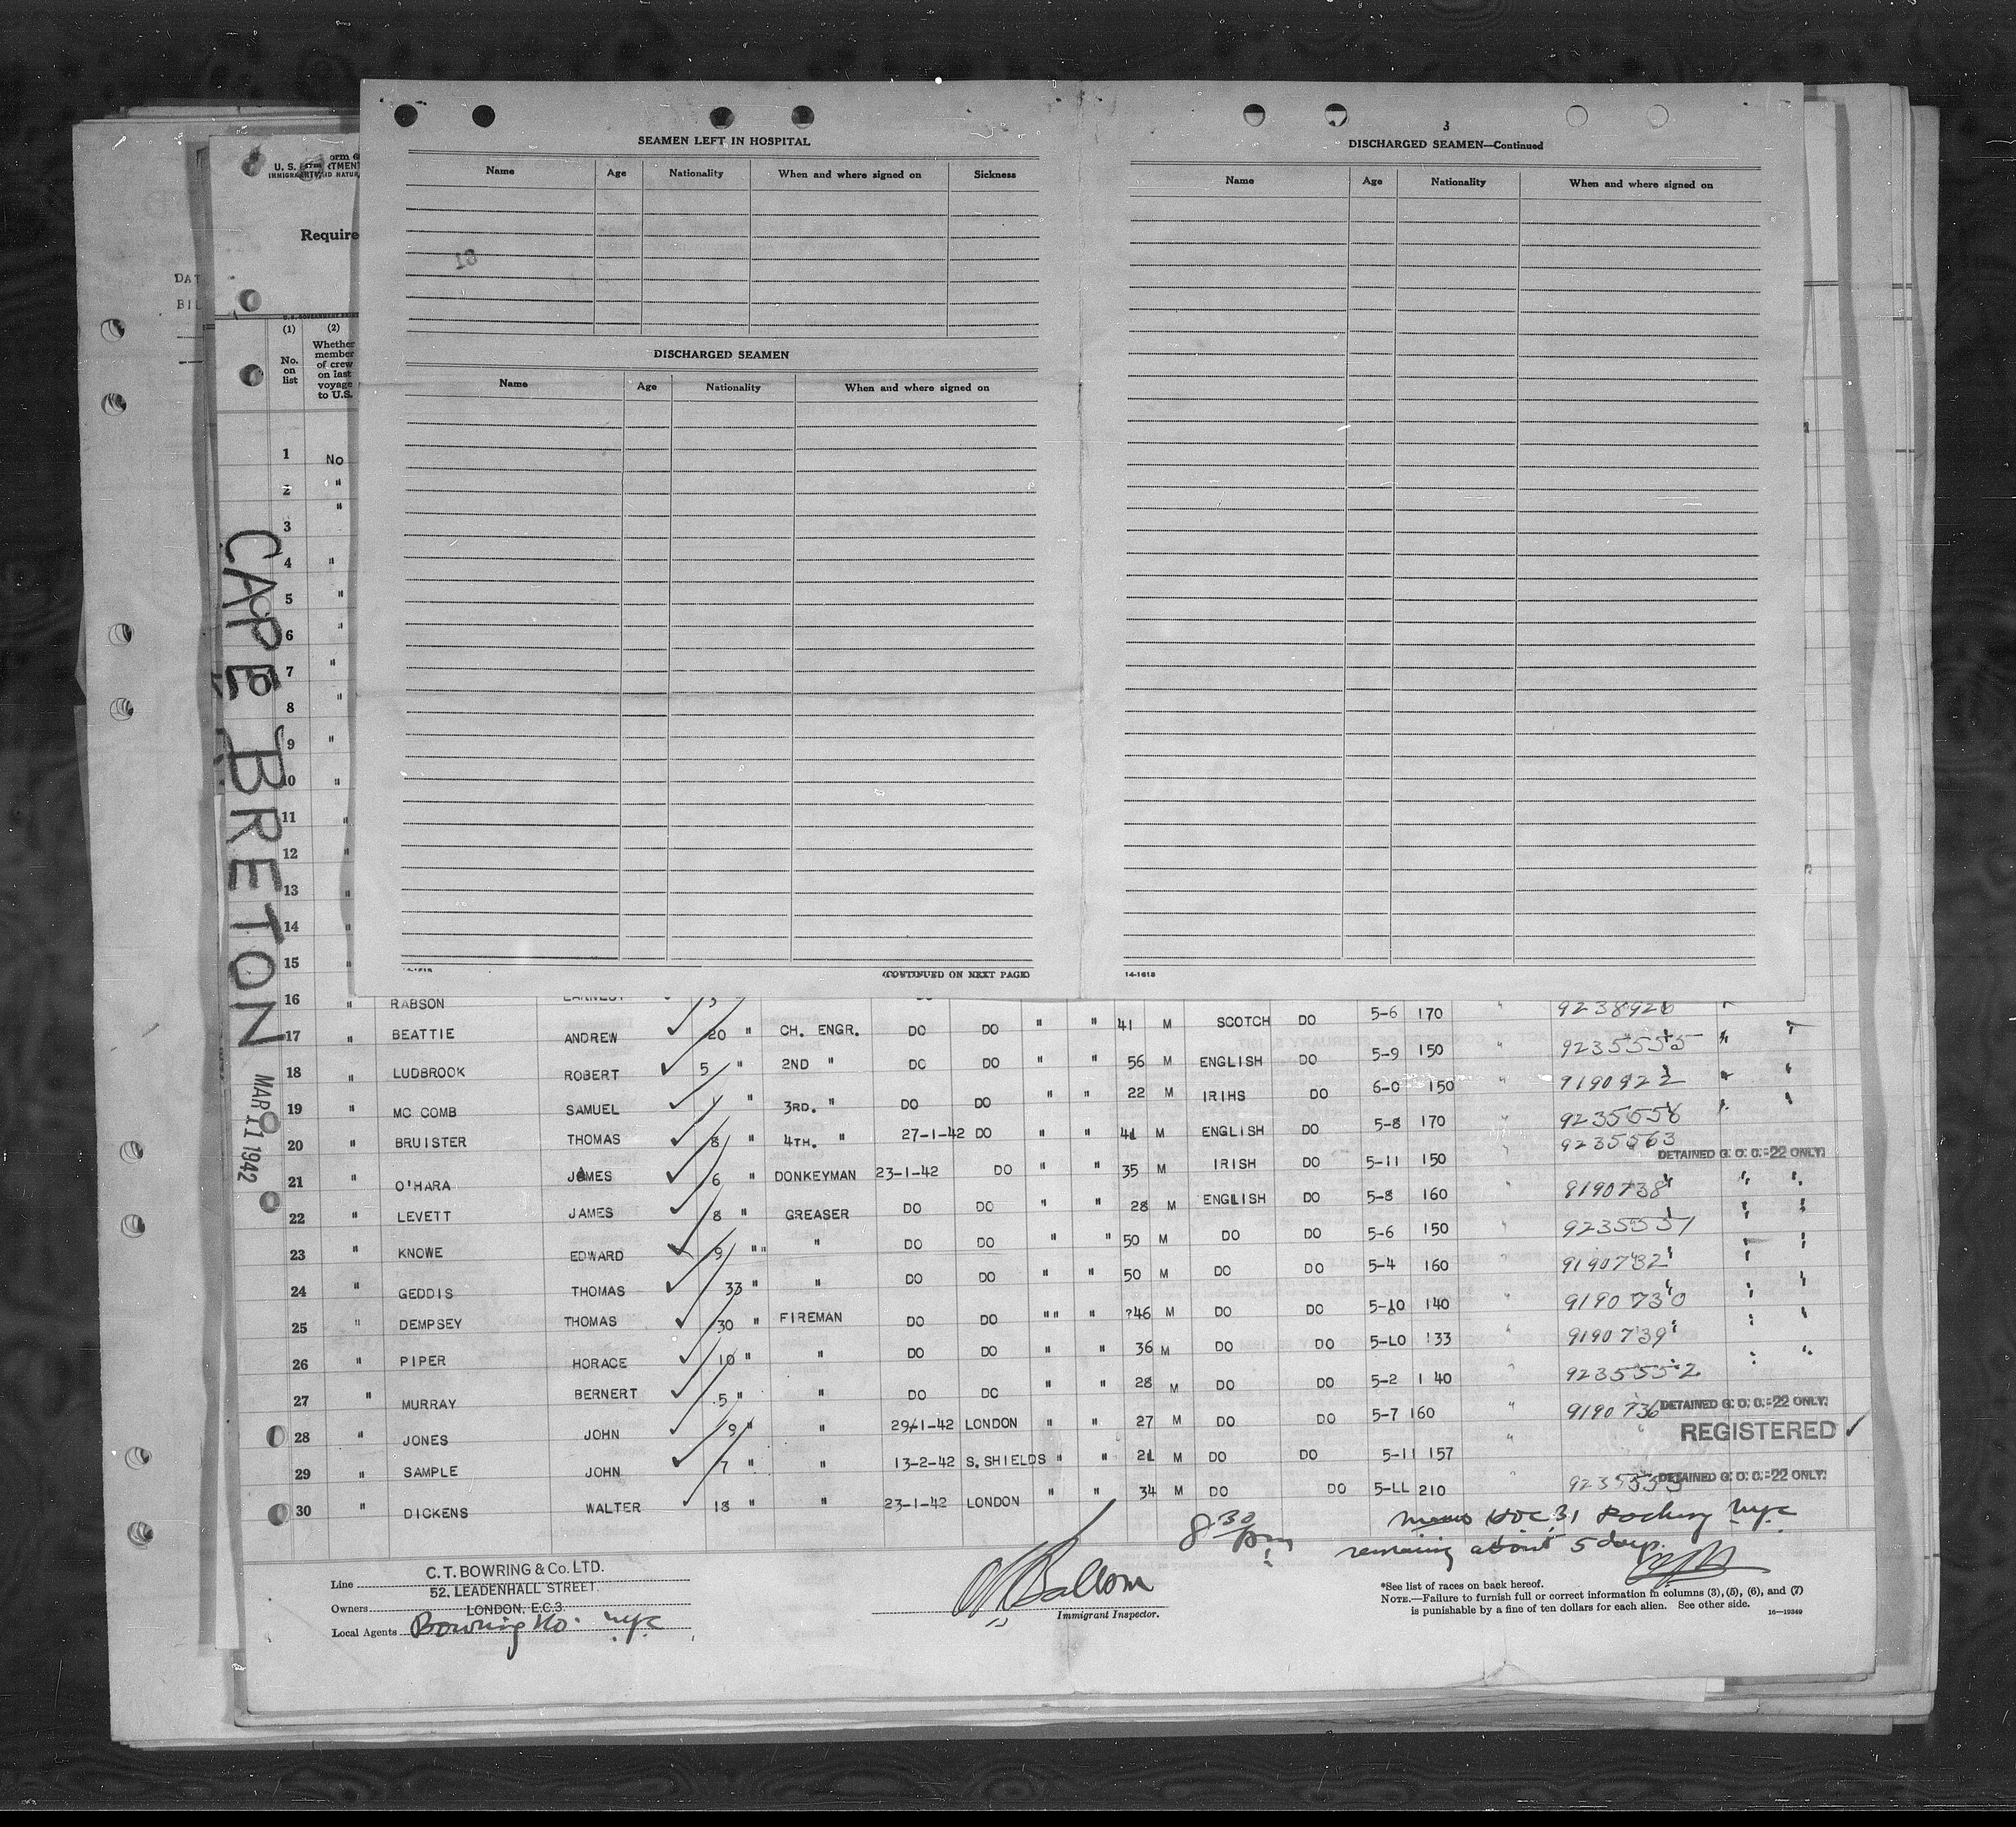 SEAMEN LEFT IN HOSPITAL
Name Age Nationality When and where signed on Sickness
13
DISCHARGED SEAMEN
Name Age Nationality When and where signed on
(CONTINUED ON NEXT PAGE)
3
DISCHARGED SEAMEN—Continued
Name Age Nationality When and where signed on
14-1618
U. S.
Require
DAT
BIL
(1) (2)
No. on list
Whether member of crew on last voyage to U.S.
CAPE BRETON
MAR 11 1942
1 No
2 "
3 "
4 "
5 "
6 "
7 "
8 "
9 "
10 "
11 "
12 "
13 "
14 "
15 "
16 " RABSON 5-6 170 " 9238926
17 " BEATTIE ANDREW ✓ 20 " CH. ENGR. DO DO " " 41 M SCOTCH DO 5-9 150 " 9235555 "
18 " LUDBROOK ROBERT ✓ 5 " 2ND " DO DO " " 56 M ENGLISH DO 6-0 150 " 9190922 "
19 " MC COMB SAMUEL ✓ " 3RD. " DO DO " " 22 M IRIHS DO 5-8 170 " 9235558
20 " BRUISTER THOMAS ✓ 8 " 4TH. " 27-1-42 DO " " 41 M ENGLISH DO 5-11 150 9235563 DETAINED G. O. C.-22 ONLY.
21 " O'HARA JAMES ✓ 6 " DONKEYMAN 23-1-42 DO " " 35 M IRISH DO 5-8 160 " 8190738 " "
22 " LEVETT JAMES ✓ 8 " GREASER DO DO " " 28 M ENGLISH DO 5-6 150 " 9235551 " "
23 " KNOWE EDWARD ✓ 9 "" " DO DO " " 50 M DO DO 5-4 160 " 9190732 " "
24 " GEDDIS THOMAS ✓ 33 " " DO DO " " 50 M DO DO 5-10 140 " 9190730 " "
25 " DEMPSEY THOMAS ✓ 30 " FIREMAN DO DO "" " ?46 M DO DO 5-LO 133 " 9190739 " "
26 " PIPER HORACE ✓ 10 " " DO DO " " 36 M DO DO 5-2 140 " 9235552 " "
27 " MURRAY BERNERT ✓ 5 " " DO DO " " 28 M DO DO 5-7 160 " 9190736 DETAINED G. O. C.-22 ONLY.
28 " JONES JOHN 9 " " 29-1-42 LONDON " " 27 M DO DO 5-11 157 " REGISTERED ✓
29 " SAMPLE JOHN ✓ 7 " " 13-2-42 S. SHIELDS " " 21 M DO DO 5-LL 210 " 9235553 DETAINED G. O. C.-22 ONLY.
30 " DICKENS WALTER ✓ 18 " " 23-1-42 LONDON " " 34 M DO DO
8 30 pm
31 nyc
remaining about 5 days.
Line C. T. BOWRING & Co. LTD.
52, LEADENHALL STREET.
Owners LONDON, E.C.3.
Local Agents Bowring & Co. nyc
Immigrant Inspector.
*See list of races on back hereof.
NOTE.—Failure to furnish full or correct information in columns (3), (5), (6), and (7)
is punishable by a fine of ten dollars for each alien. See other side. 16—19349